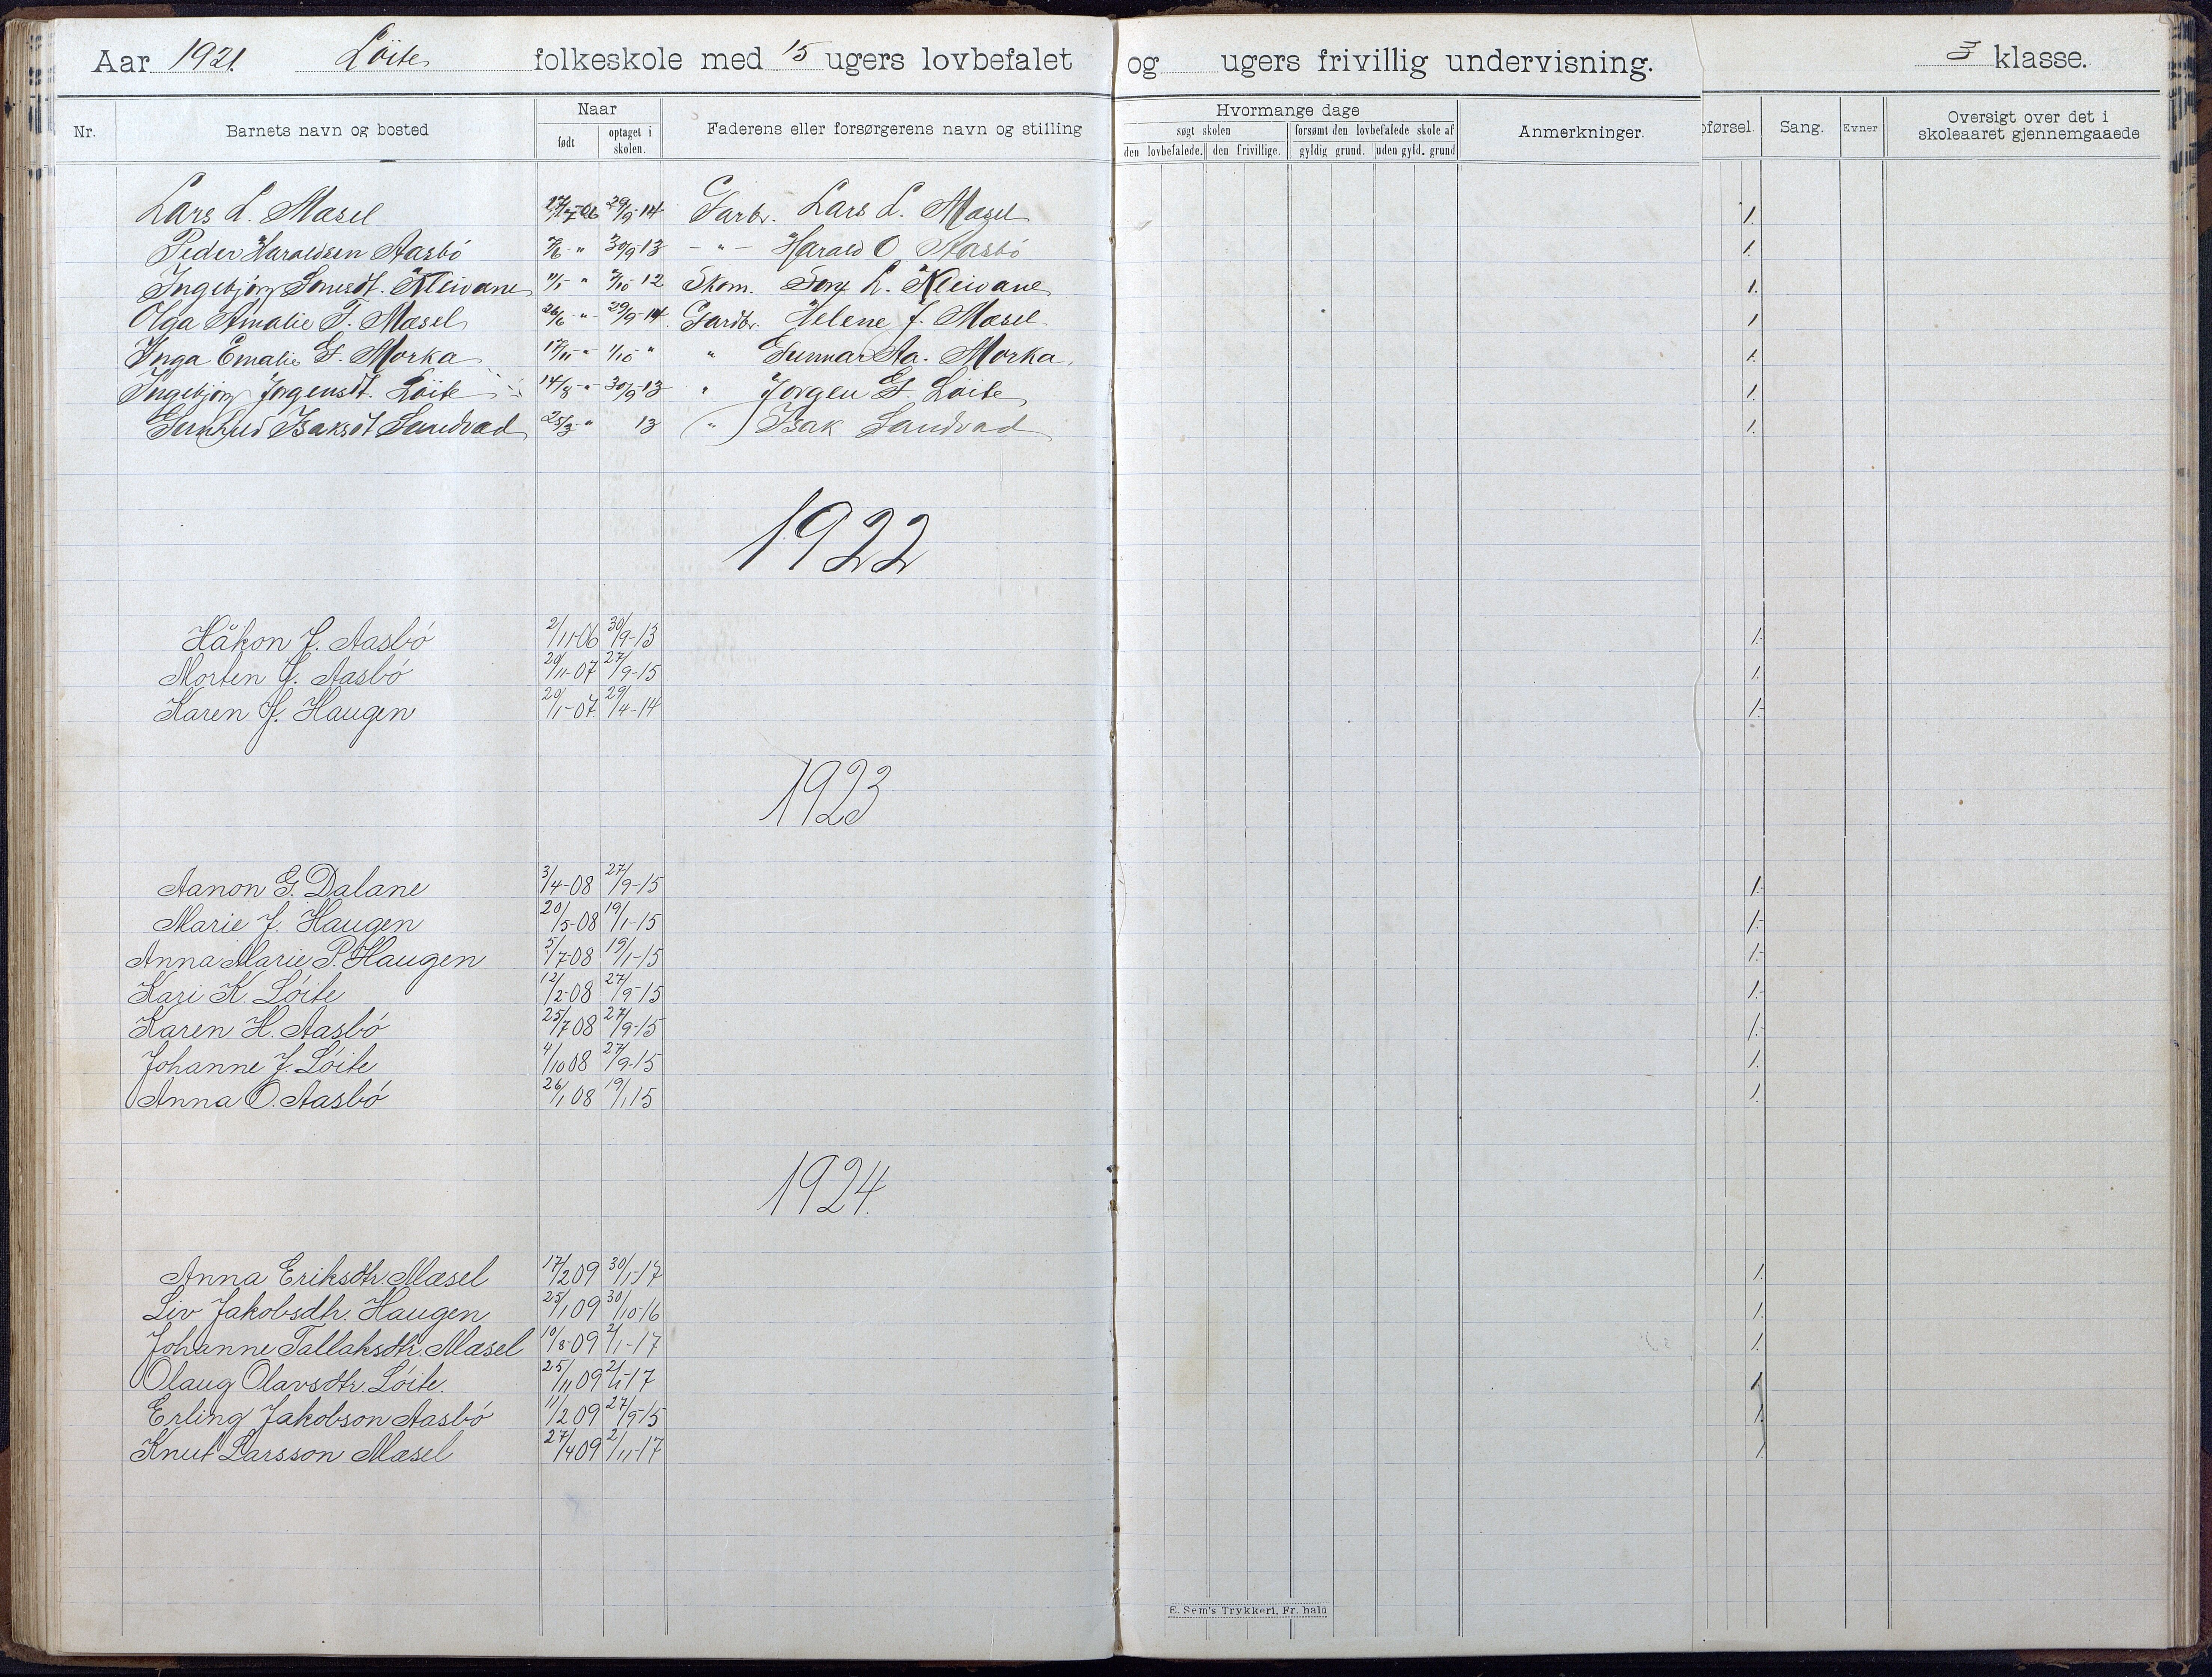 Aar 1921. Löite folkeskole med 15 ugers lovbefalet og ugers frivillig undervisning. 3 klasse.
Nr. Barnets navn og bosted Naar født optaget i skolen. Faderens eller forsørgerens navn og stilling
Hvormange dage søgt skolen den lovbefalede. den frivillige. forsømt den lovbefalede skole af gyldig grund. uden gyld. grund Anmerkninger.
pførsel. Sang. Evner Oversigt over det i skoleaaret gjennemgaaede
Lars L. Mæsel 29/9-14 Garbr. Lars L. Mæsel 1.
Peder Haraldsen Aasbö " 30/9-13 - " - Harald O. Aasbö 1.
Ingebjörg Kleivane " 12 Skom. L. Kleivane 1.
Olga Amalie T. Mæsel 26/6 - " 29/9-14 Gardbr. Helene J. Mæsel. 1
Inga Emalie G. Morka 17/11 - " 1/10 " " Gunnar Aa. Morka. 1.
Ingebjörg Jörgensdt. Löite 14/8 - " 30/9-13 " Jörgen G. Löite 1.
Isaksdt Sandvad 25/3 - " 13 " Isak Sandvad 1.
1922
Håkon J. Aasbö 2/11-06 30/9-13 1.-
Morten J. Aasbö 20/11-07 27/9-15 1.
Karen J. Haugen 20/1-07. 29/4-14 1.-
1923
Aanon G. Dalane 3/4-08 27/9-15 1.-
Marie J. Haugen 20/5-08 19/1-15 1.-
Anna Marie P. Haugen 5/7-08 19/1-15 1.-
Kari K. Löite 12/2-08 27/9-15 1.-
Karen H. Aasbö 25/7 08 27/9-15 1.-
Johanne J. Löite 4/10 08 27/9-15 1.
Anna O. Aasbö 26/1 08 19/1 15 1.
1924.
Anna Eriksdtr. Mæsel 17/2 09 30/1-17 1.
Liv Jakobsdtr. Haugen 25/1 09 30/10-16 1.
Johanne Tallaksdtr. Mæsel 10/8-09 2/1-17 1.
Olaug Olavsdtr. Löite. 25/11 09 2/1-17 1
Erling Jakobson Aasbö 11/2 09 27/9-15 1.
Knut Larsson Mæsel 27/4 09 2/11-17 1.
E. Sem's Trykkeri, Fr. hald